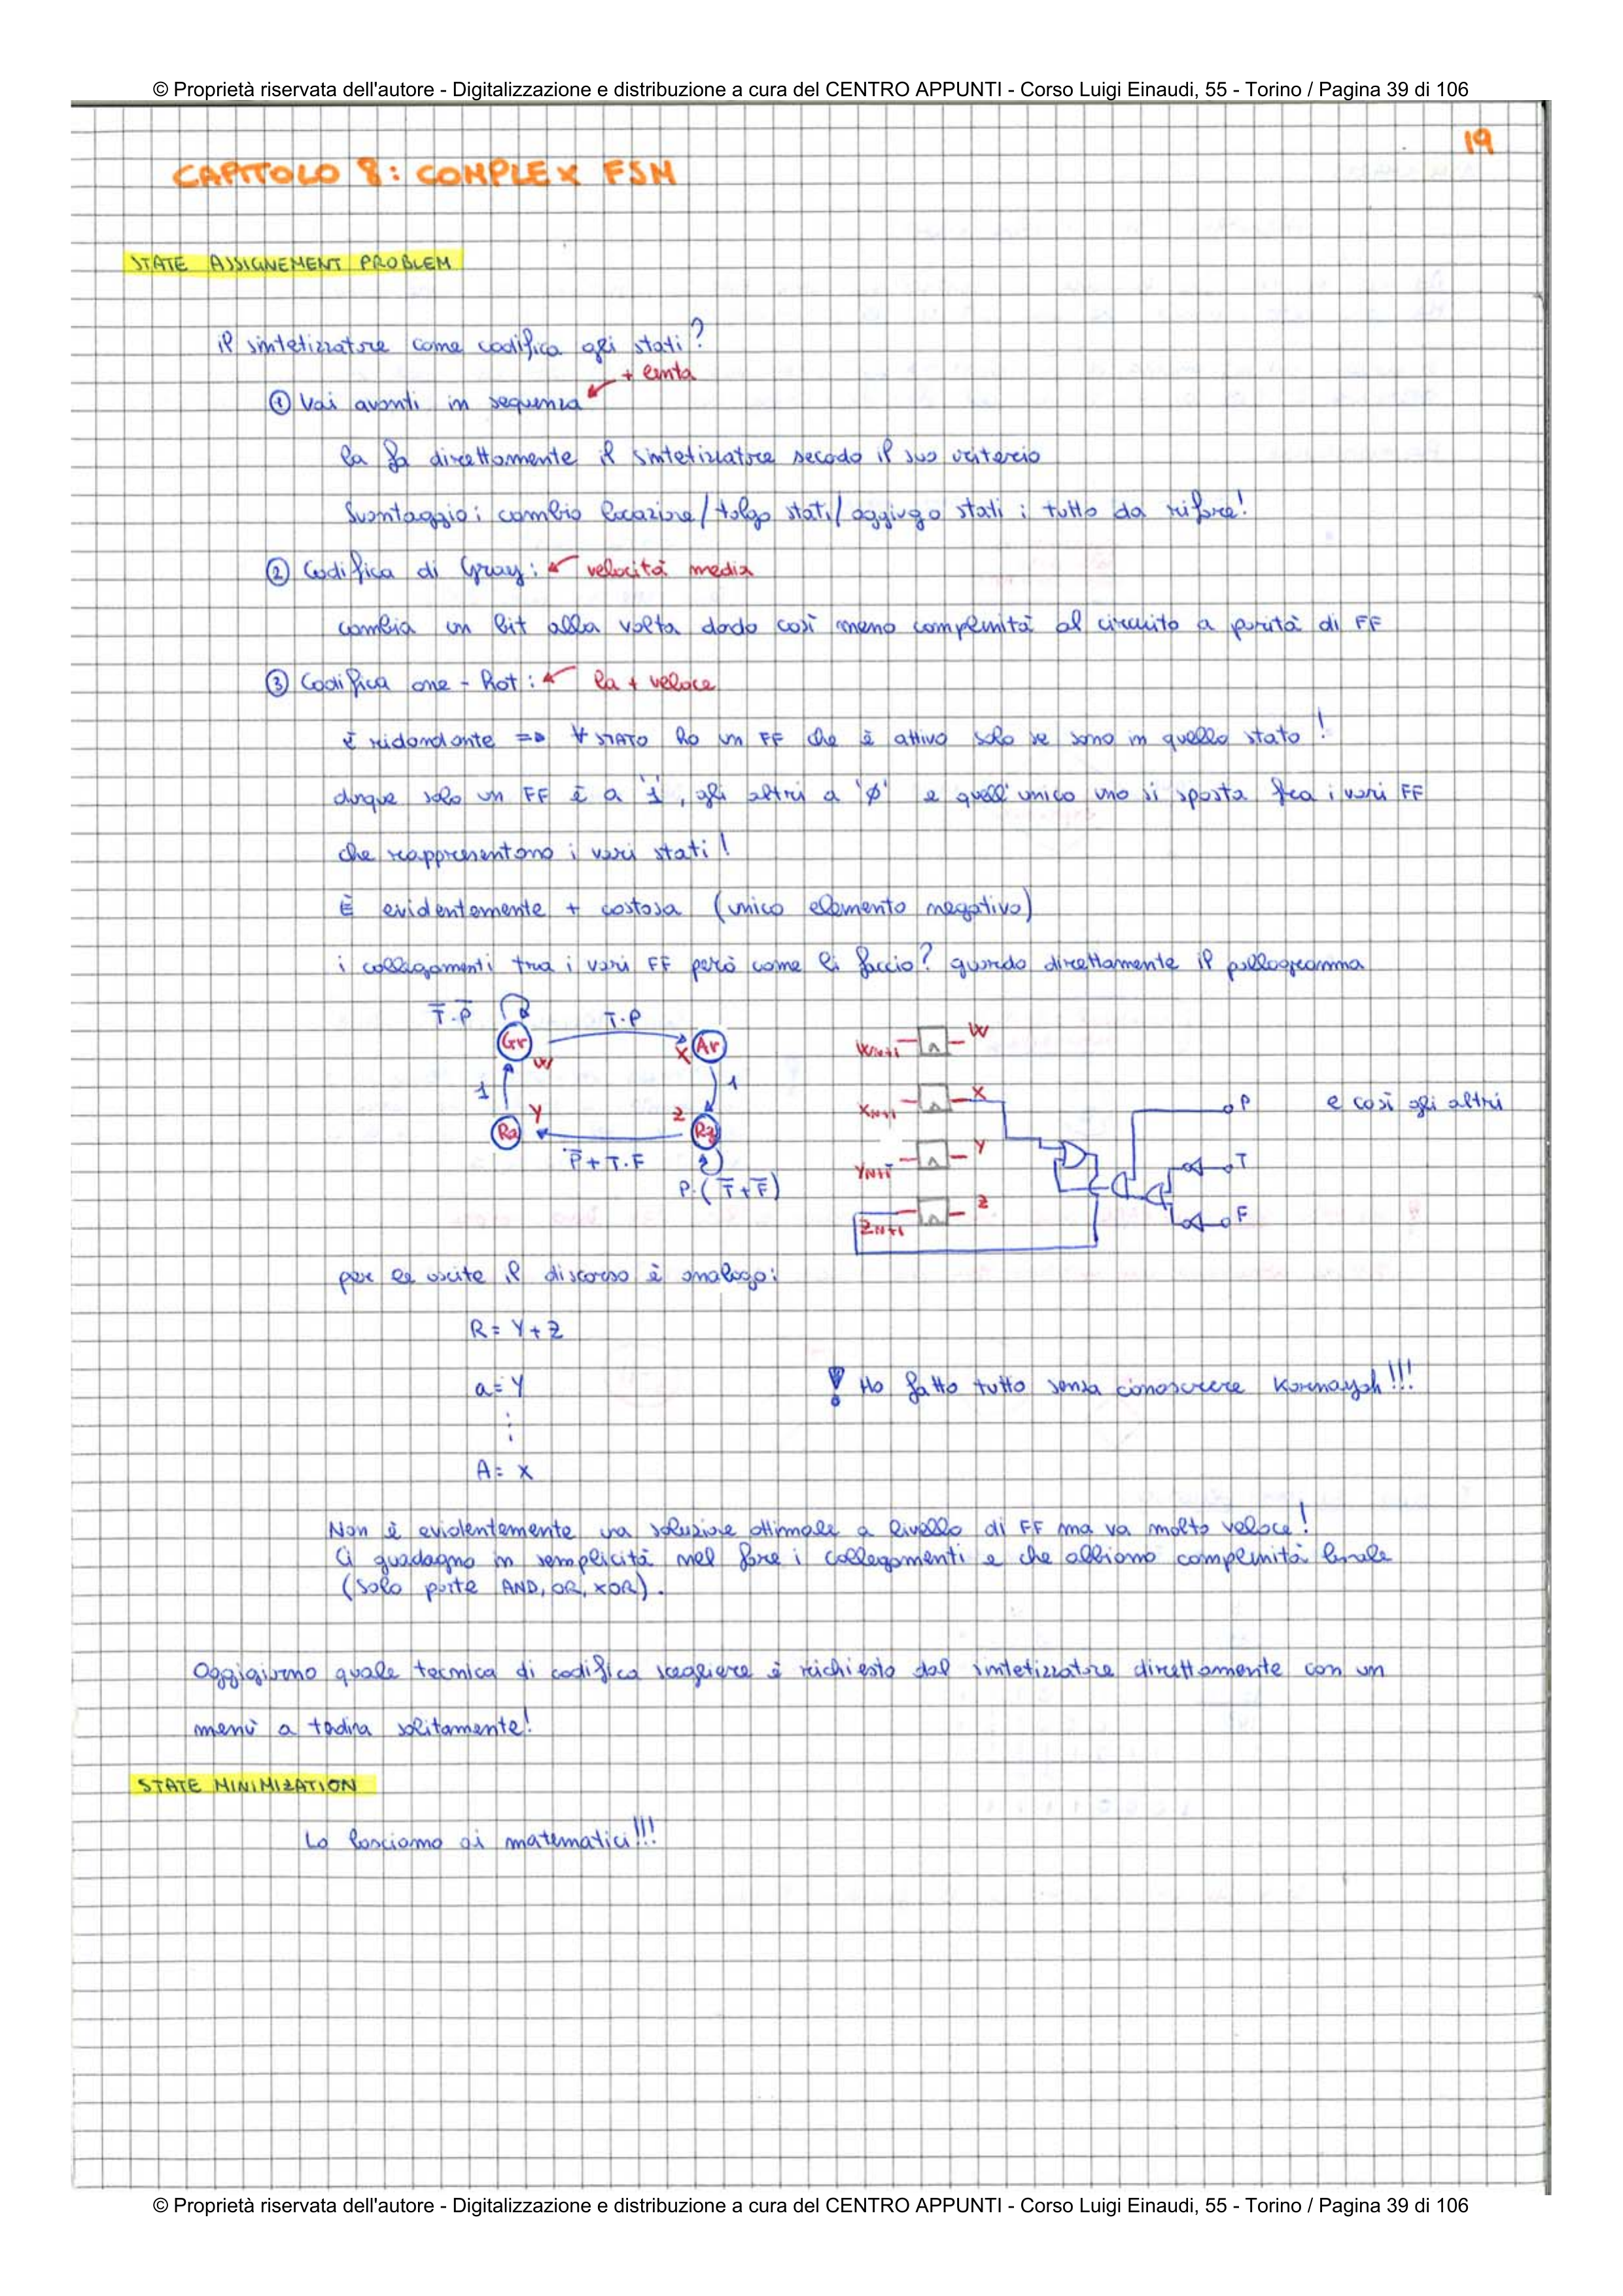 © Proprietà riservata dell'autore - Digitalizzazione e distribuzione a cura del CENTRO APPUNTI - Corso Luigi Einaudi, 55 - Torino / Pagina 39 di 106
19
CAPITOLO 8: COMPLEX FSM
STATE ASSIGNEMENT PROBLEM
il sintetizzatore come codifica gli stati?
+ lenta
① Vai avanti in sequenza
la fa direttamente il sintetizzatore secodo il suo criterio
Svantaggio: cambio locazione/tolgo stati/aggiungo stati : tutto da rifare!
② Codifica di Gray: velocità media
cambia un bit alla volta dado così meno complessità al circuito a parità di FF
③ Codifica one-hot: la + veloce
è ridondante => ∀ STATO ho un FF che è attivo solo se sono in quello stato!
dunque solo un FF è a '1', gli altri a 'Ø' e quell'unico uno si sposta fra i vari FF
che rappresentono i vari stati!
È evidentemente + costosa (unico elemento negativo)
i collegamenti tra i vari FF però come li faccio? guardo direttamente il pallogramma
T̅·P̅
T·P
Gr
W
X
Ar
1
1
Y
Z
Ra
P̅+T·F
P·(T̅+F̅)
W_N+1 W
X_N+1 X
Y_N+1 Y
Z_N+1 Z
P
T
F
e così gli altri
per le uscite il discorso è analogo:
R= Y+Z
a= Y
⋮
A= X
Ho fatto tutto senza conoscere Karnaugh!!!
Non è evidentemente una soluzione ottimale a livello di FF ma va molto veloce!
Ci guadagno in semplicità nel fare i collegamenti e che abbiamo complessità
(solo porte AND, OR, XOR).
Oggigiorno quale tecnica di codifica scegliere è richiesto dal sintetizzatore direttamente con un
menù a solitamente!
STATE MINIMIZATION
Lo lasciamo ai matematici!!!
© Proprietà riservata dell'autore - Digitalizzazione e distribuzione a cura del CENTRO APPUNTI - Corso Luigi Einaudi, 55 - Torino / Pagina 39 di 106